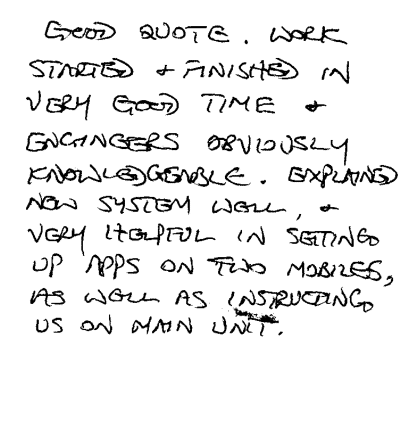 GOOD QUOTE. WORK
STARTED + FINISHED IN
VERY GOOD TIME +
ENGINEERS OBVIOUSLY
KNOWLEDGEABLE. EXPLAINED
NEW SYSTEM WELL, +
VERY HELPFUL IN SETTING
UP APPS ON TWO MOBILES,
AS WELL AS INSTRUCTING
US ON MAIN UNIT.